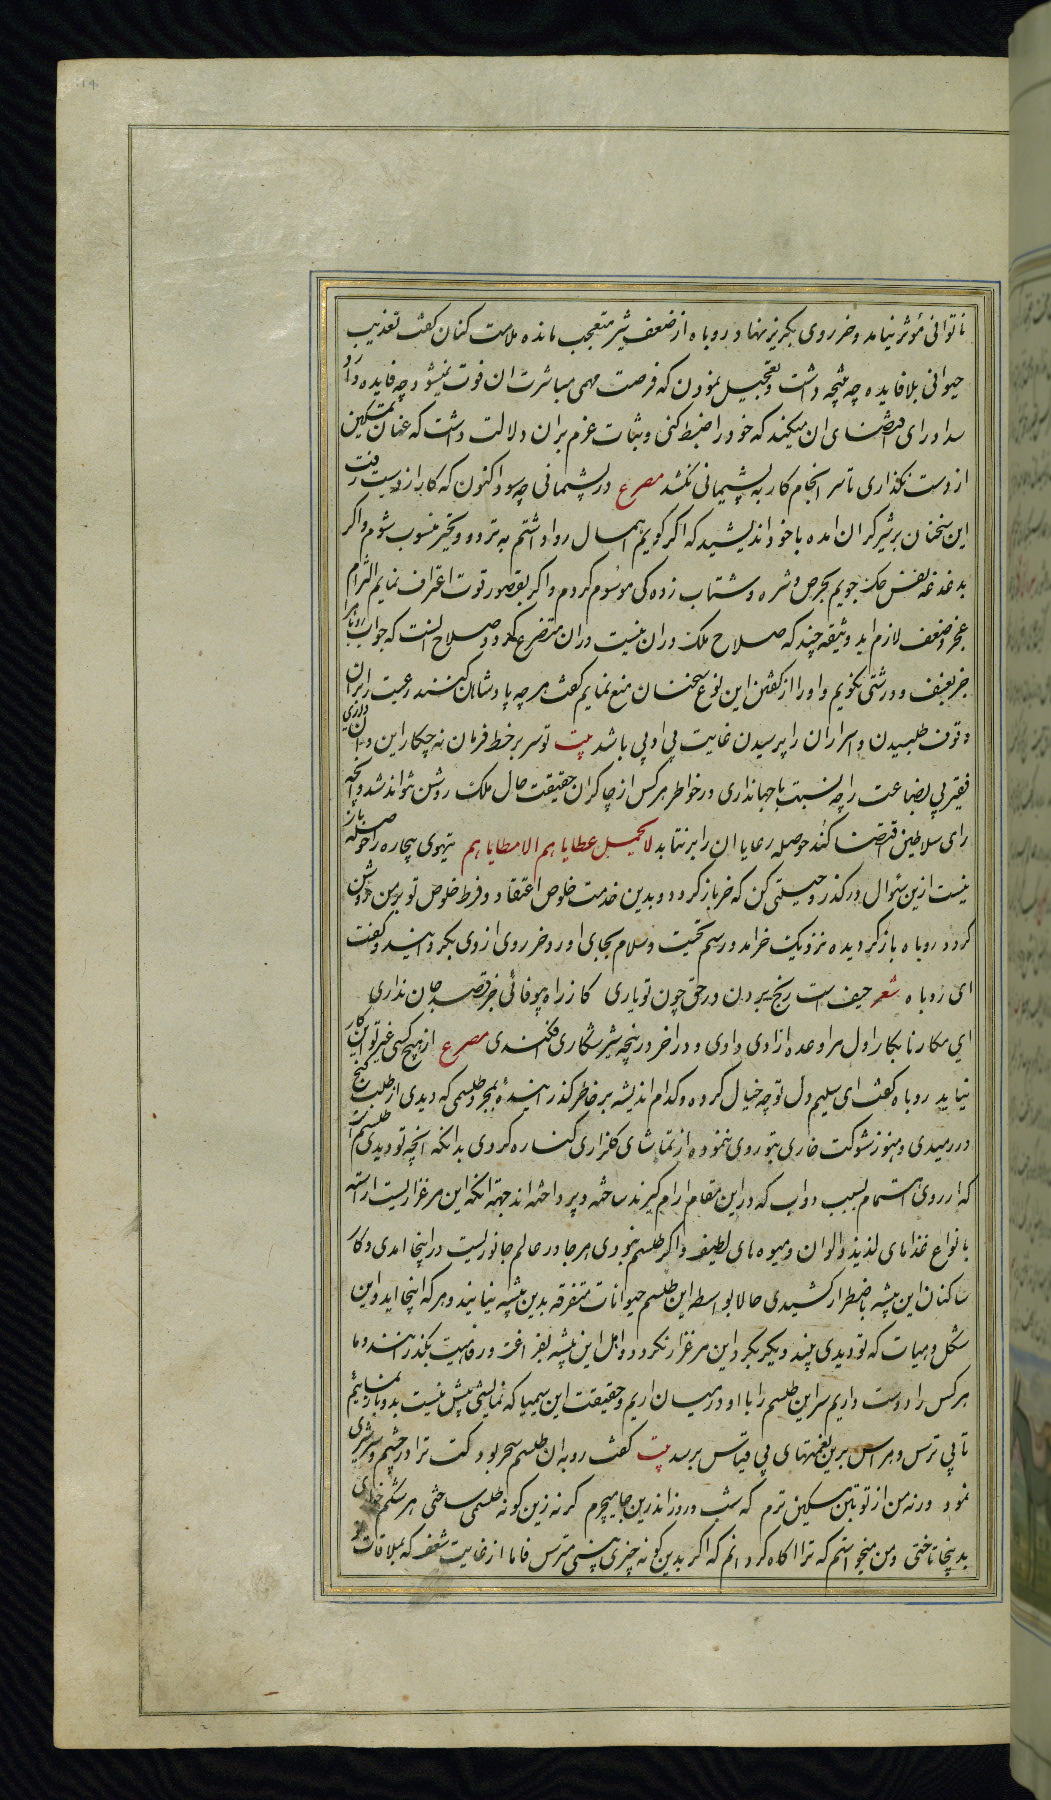 ناتوانی مؤثر نیامد و خر روی بگریز نهاد روباه از ضعف شیر متعجب مانده ملامت کنان گفت تعذیب
حیوانی بلافایده چه نتیجه داشت و تعجیل نمودن که فرصت مهمی مباشرت ان فوت نمیشود چه فایده دارد
سداد رای اقتضای ان میکند که خود را ضبط کنی و ثبات عزم بران دلالت داشت که عنان تمکین
از دست نگذاری تا سر انجام کار به پشیمانی نکشد مصرع در پشیمانی چه سود اکنون که کار از دست رفت
این سخنان بر شیر گران امده با خود اندیشید که اگر گویم اهمال روا داشتم به تردد و تحیر منسوب شوم و اگر
بدغدغه نفس جویم بحرص و شره و شتاب زده کی موسوم گردم و اگر بقصور قوت اعتراف نمایم التزام
عجز و ضعف لازم اید وثیقه چند که صلاح ملک دران نیست دران متفرع گردد صلاح انست که جواب روباه را
جز بعنف و درشتی نگویم و اورا از گفتن این نوع سخنان منع نمایم گفت هرچه پادشاهان کنند رعیت را بران
وقوف طلبیدن و اسرار ان را پرسیدن غایت بی ادبی باشد بیت تو سر بر خط فرمان نه چکار این و ان داری
فقیر بی بضاعت را چه نسبت با جهانداری در خواطر هر کس از چاکران حقیقت حال ملک روشن نتواند شد و انچه
رای سلاطین اقتضا کند حوصله رعایا ان را برنتابد لا یحمل عطایاهم الا مطایاهم تیهوی بیچاره را حوصله باز
نیست ازین سئوال درگذر و حیلتی کن که خر باز گردد و بدین خدمت خلوص اعتقاد و فرط خلوص تو بر من روشن
گردد روباه باز گردیده نزدیک خر امد و رسم تحیت و سلام بجای اورد خر روی از وی بگردانید و گفت
ای روباه شعر حیف است رنج بردن در حق چون تو یاری کاز راه بیوفائی جز قصد جان نداری
ای مکار نابکار اول مرا وعده ازادی دادی و در اخر در پنجه شیر شکاری افکندی مصرع از هیچ کسی غیر تو این کار
نیاید روباه گفت ای سلیم دل تو چه خیال کرده و کدام اندیشه بر خاطر گذرانیده بمجرد طلسمی که دیدی از طلب گنج
در رمیدی و هنوز شوکت خاری بتو روی ننموده از تماشای گلزاری کناره کردی بدانکه انچه تو دیدی طلسم است
که از روی اهتمام بسبب دواب که دراین مقام ارام گیرند ساخته و پرداخته اند جهة انکه این مرغزاریست اراسته
بانواع غذاهای لذیذ والوان و میوه های لطیف و اگر طلسم نبودی هر جا در عالم جانوریست در اینجا امدی و کار
ساکنان این بیشه باضطرار کشیدی حالا بواسطه این طلسم حیوانات متفرقه بدین بیشه نیایند و هر که اینجا اید و این
شکل و هیات که تو دیدی بیند دیگر بگرد این مرغزار نگردد و اهل این بیشه بفراغت و رفاهیت بگذرانند و ما
هر کس را دوست داریم سر این طلسم را با او در میان اریم و حقیقت این سیمیا که نمایشی بیش نیست بدو باز نمائیم
تا بی ترس و هراس برین نعمتهای بی قیاس برسد بیت گفت روبه ان طلسم سحر بود کت ترا در چشم شیری
نمود ورنه من از تو بتن مسکین ترم که شب و روز اندرین جا میچرم گر نه زین گونه طلسمی ساختی هر شکم خواری
بدینجا تاختی و من میخواستم که ترا اگاه گردانم که اگر بدین گونه چیزی بینی مترس فاما از غایت شغف که بملاقات تو